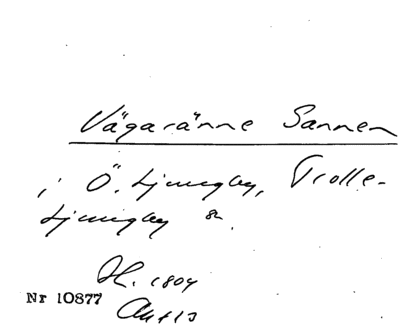 Vägaränne Sannen
i Ö. Ljungby, Trolle-
Ljungby sn.
1804
Nr 10877